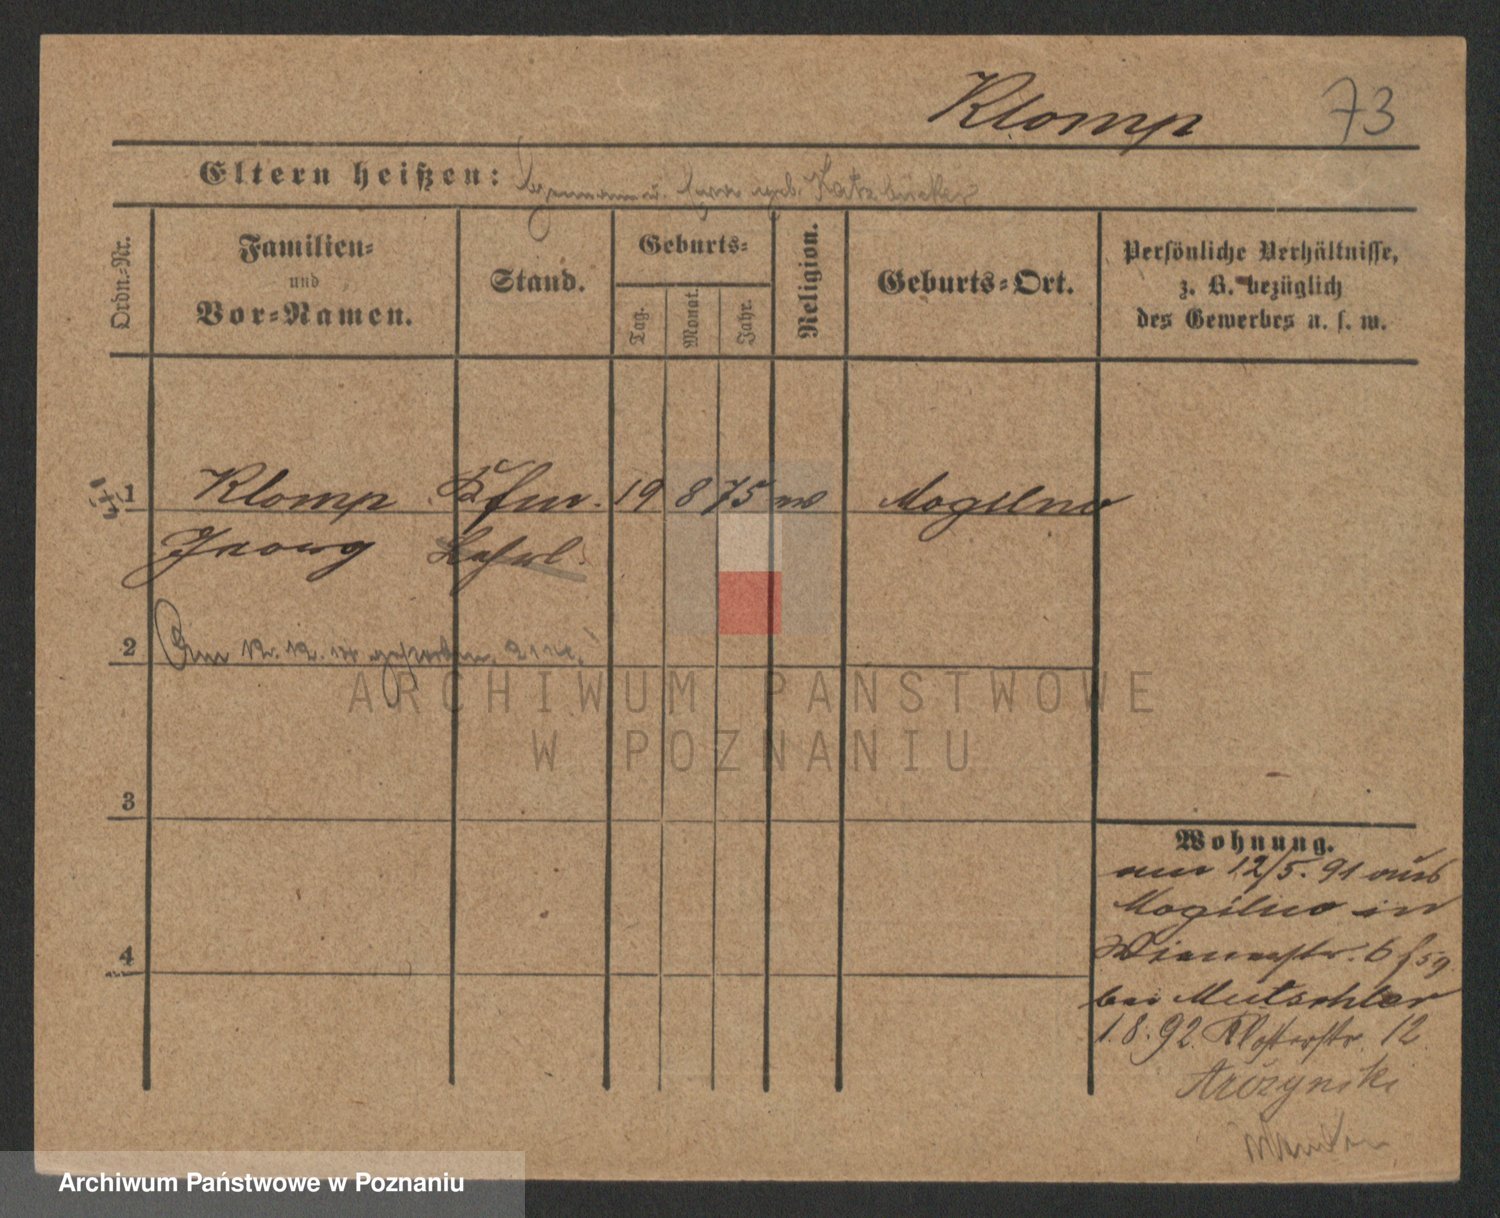 Klomp 73
Eltern heißen: geb. Katz
Ordn.-Nr.
Familien-
und
Vor-Namen.
Stand.
Geburts-
Tag.
Monat.
Jahr.
Religion.
Geburts-Ort.
Persönliche Verhältnisse,
z. B. bezüglich
des Gewerbes u. s. w.
1 Klomp Kfm. 19 8 75 Mogilno
Georg Lehrl.
2 gestorben
3
4
Wohnung.
am 12/5. 91 aus
Mogilno in
Wienerstr. 6
bei Mutschler
1.8.92. Klosterstr. 12
ARCHIWUM PAŃSTWOWE
W POZNANIU
Archiwum Państwowe w Poznaniu